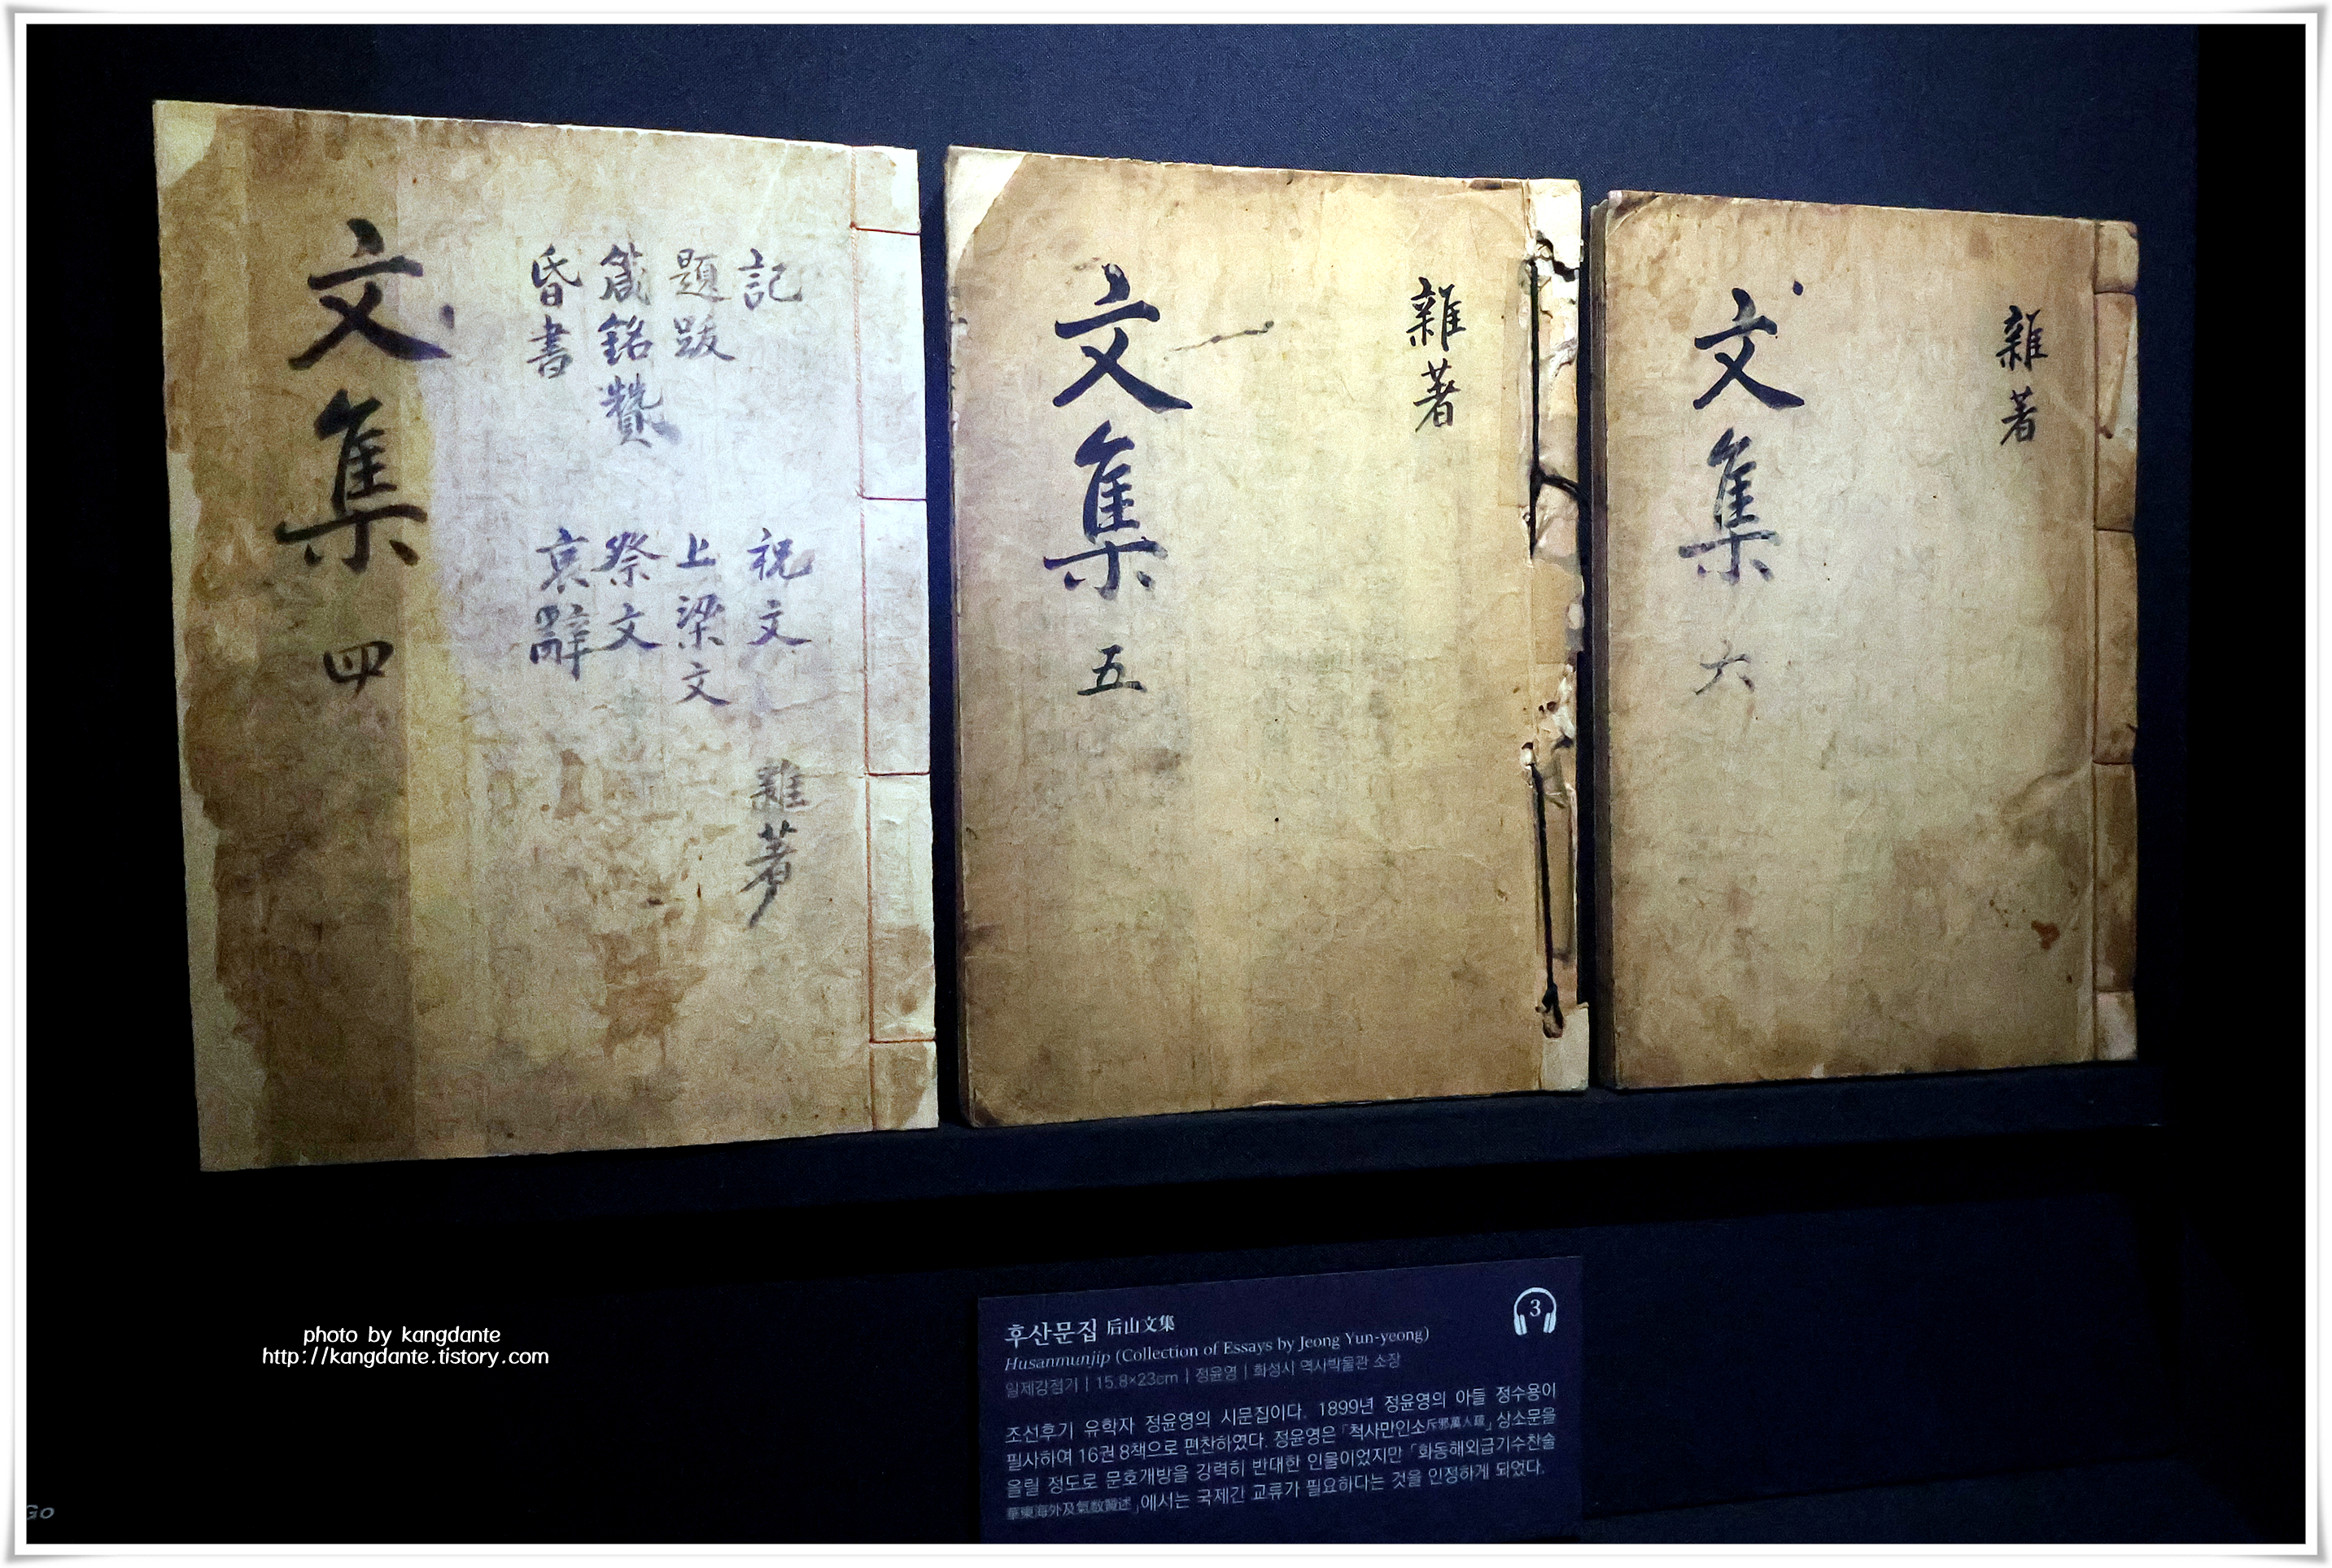 文集 四
記
題跋
箴銘贊
昏書
祝文
上梁文
祭文
哀辭
雜著
文集 五
雜著
文集 六
雜著
photo by kangdante
http://kangdante.tistory.com
3
후산문집 后山文集
Husanmunjip (Collection of Essays by Jeong Yun-yeong)
일제강점기 | 15.8×23cm | 정윤영 | 화성시 역사박물관 소장
조선후기 유학자 정윤영의 시문집이다. 1899년 정윤영의 아들 정수용이
필사하여 16권 8책으로 편찬하였다. 정윤영은 「척사만인소斥邪萬人疏」 상소문을
올릴 정도로 문호개방을 강력히 반대한 인물이었지만 「화동해외급기수찬술
華東海外及氣數贊述」에서는 국제간 교류가 필요하다는 것을 인정하게 되었다.
Go